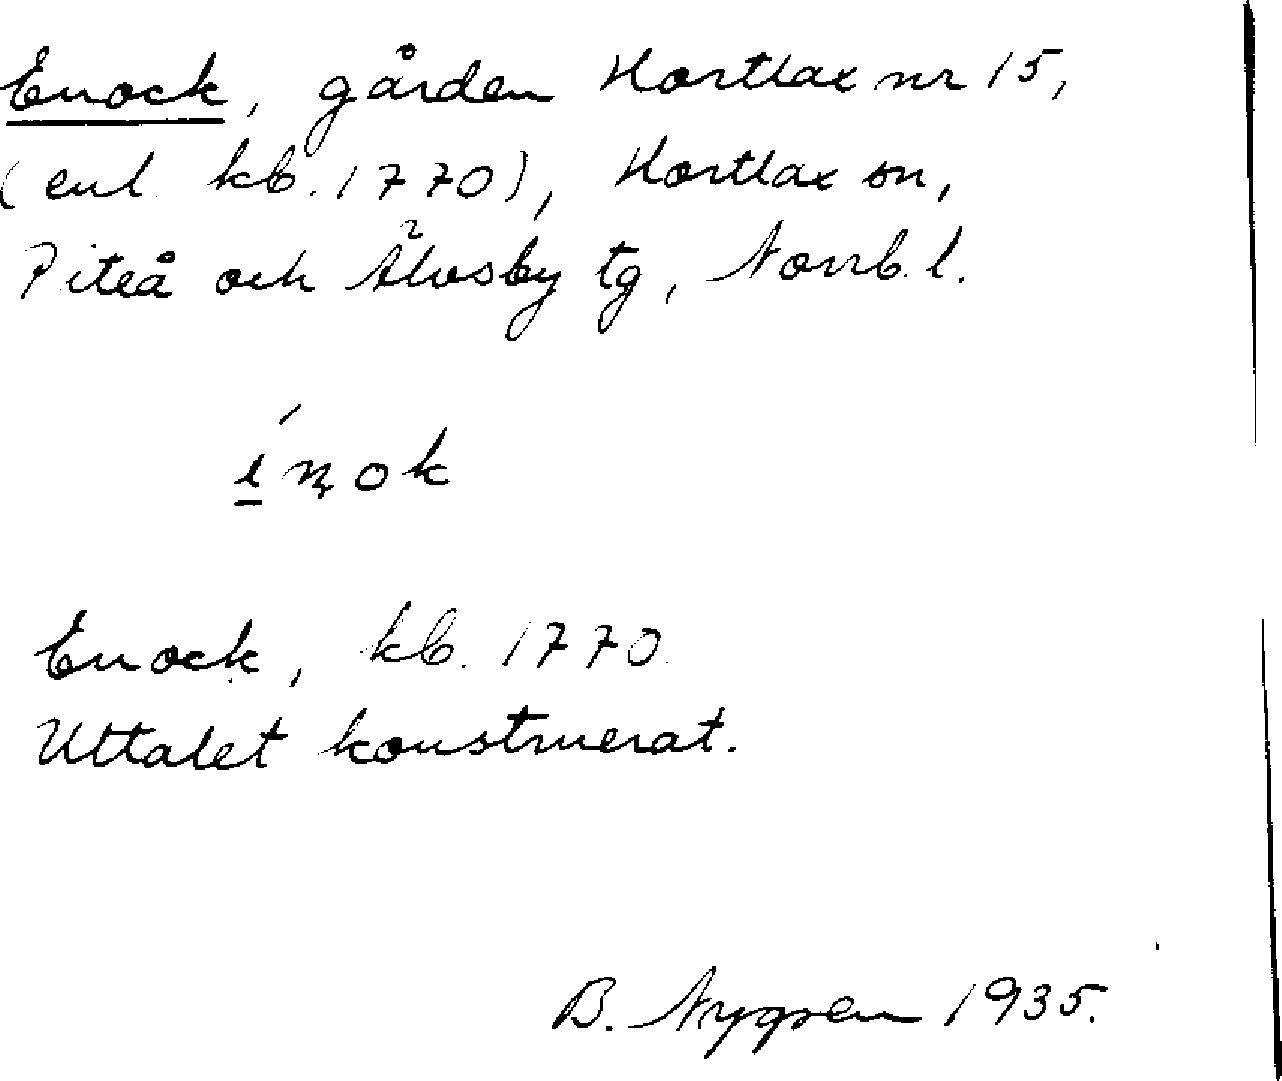 Enock, gården Hortlax nr 15,
(enl. kb. 1770), Hortlax sn,
Piteå och Älvsby tg, Norrb. l.
ínok
Enock, kb. 1770.
Uttalet konstruerat.
B. Nygren 1935.